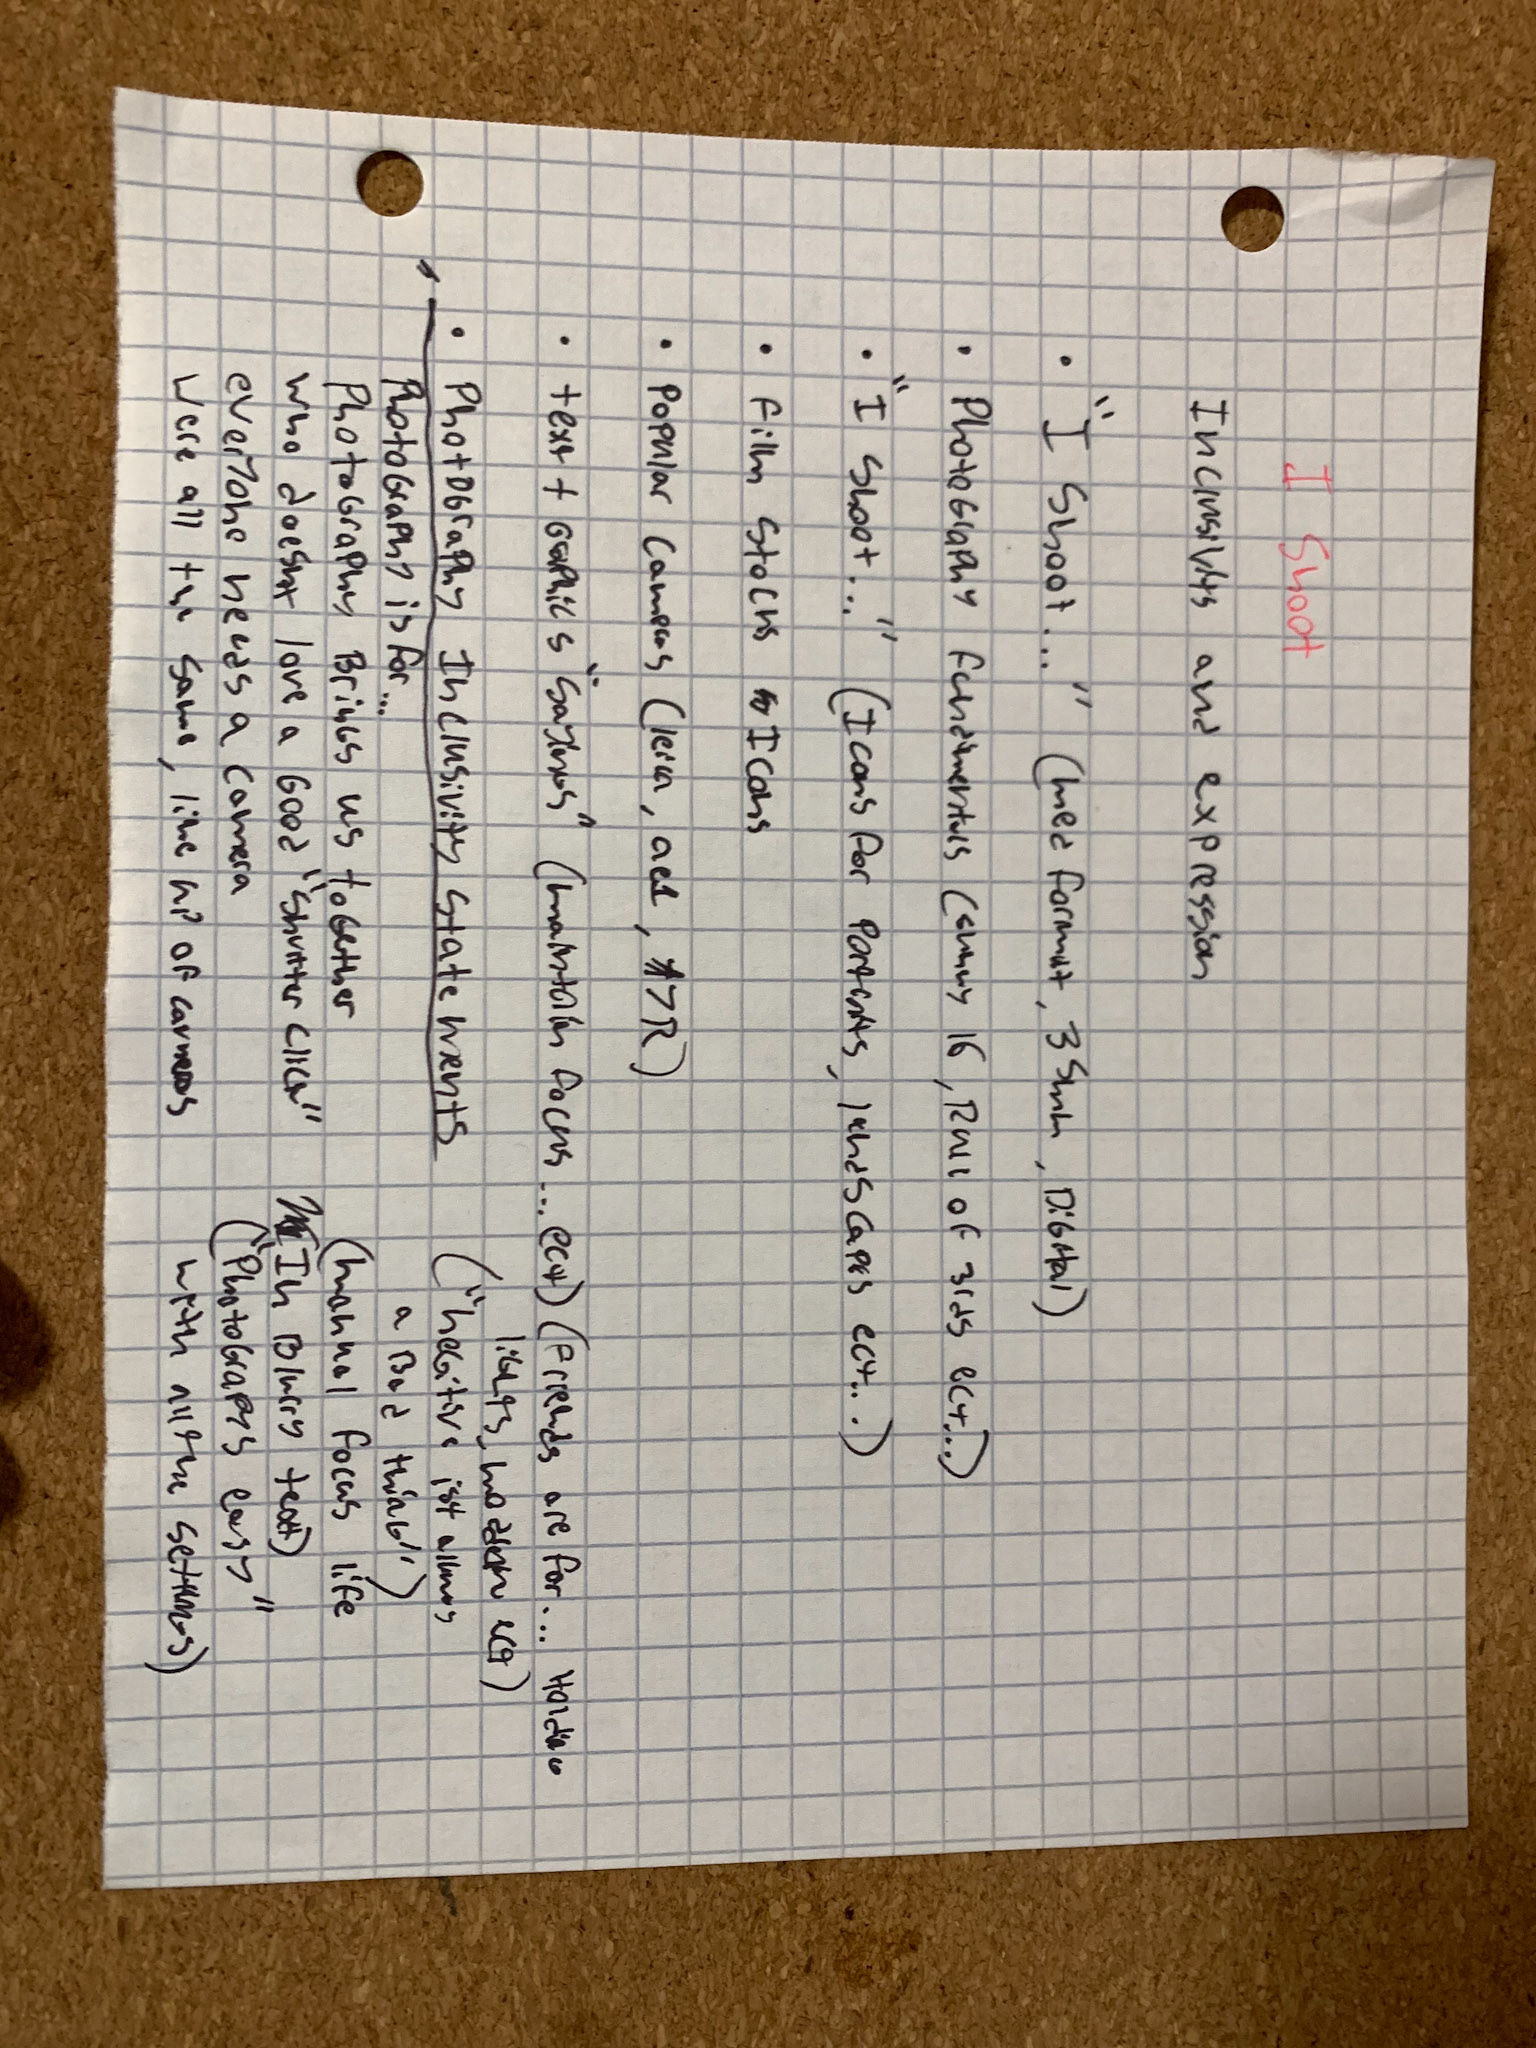 I Shoot
Inclusivity and expression
• "I Shoot..." (med format, 35mm, Digital)
• Photography fundimentals (sunny 16, Rule of 3rds ect...)
• "I Shoot..." (Icons for Portraits, landscapes ect...)
• film stocks Icons
• Popular Cameras (leica, ae1, A7R)
• text + Graphics "Sayings" (maintain focus... ect) (friends are for... Holding
lights, modeln ect)
• Photography Inclusivity statements ("negitive ist allways
Photography is for... a Bad thing")
Photography Brings us together (manual focus life
who doesnt love a Good "Shutter click" In Blurry text)
everyone needs a camera ("Photograpys easy"
were all the same, line up of cameras with all the settings)